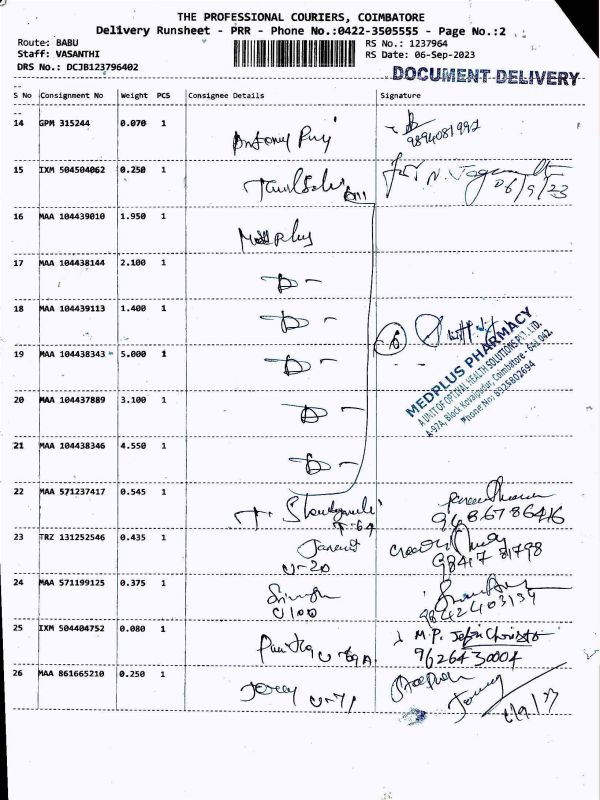 THE PROFESSIONAL COURIERS, COIMBATORE
Delivery Runsheet - PRR - Phone No.:0422-3505555 - Page No.:2
Route: BABU
RS No.: 1237964
Staff: VASANTHI
RS Date: 06-Sep-2023
DRS No.: DCJB123796402
DOCUMENT DELIVERY
S No Consignment No Weight PCS Consignee Details Signature
14 GPM 315244 0.070 1
9894081992
15 IXM 504504062 0.250 1
06/9/23
16 MAA 104439010 1.950 1
17 MAA 104438144 2.100 1
18 MAA 104439113 1.400 1
19 MAA 104438343 5.000 1
MEDPLUS PHARMACY
A UNIT OF OPTIVAL HEALTH SOLUTIONS PVT. LTD.
A-97A, Block Kovaipudur, Coimbatore - 641 042.
Phone No: 8925802694
20 MAA 104437889 3.100 1
21 MAA 104438346 4.550 1
22 MAA 571237417 0.545 1
9686786416
23 TRZ 131252546 0.435 1
U-20
9841781798
24 MAA 571199125 0.375 1
U100
9842403134
25 IXM 504404752 0.080 1
M.P. Jefin Christo
9626430004
26 MAA 861665210 0.250 1
Jerry U-71